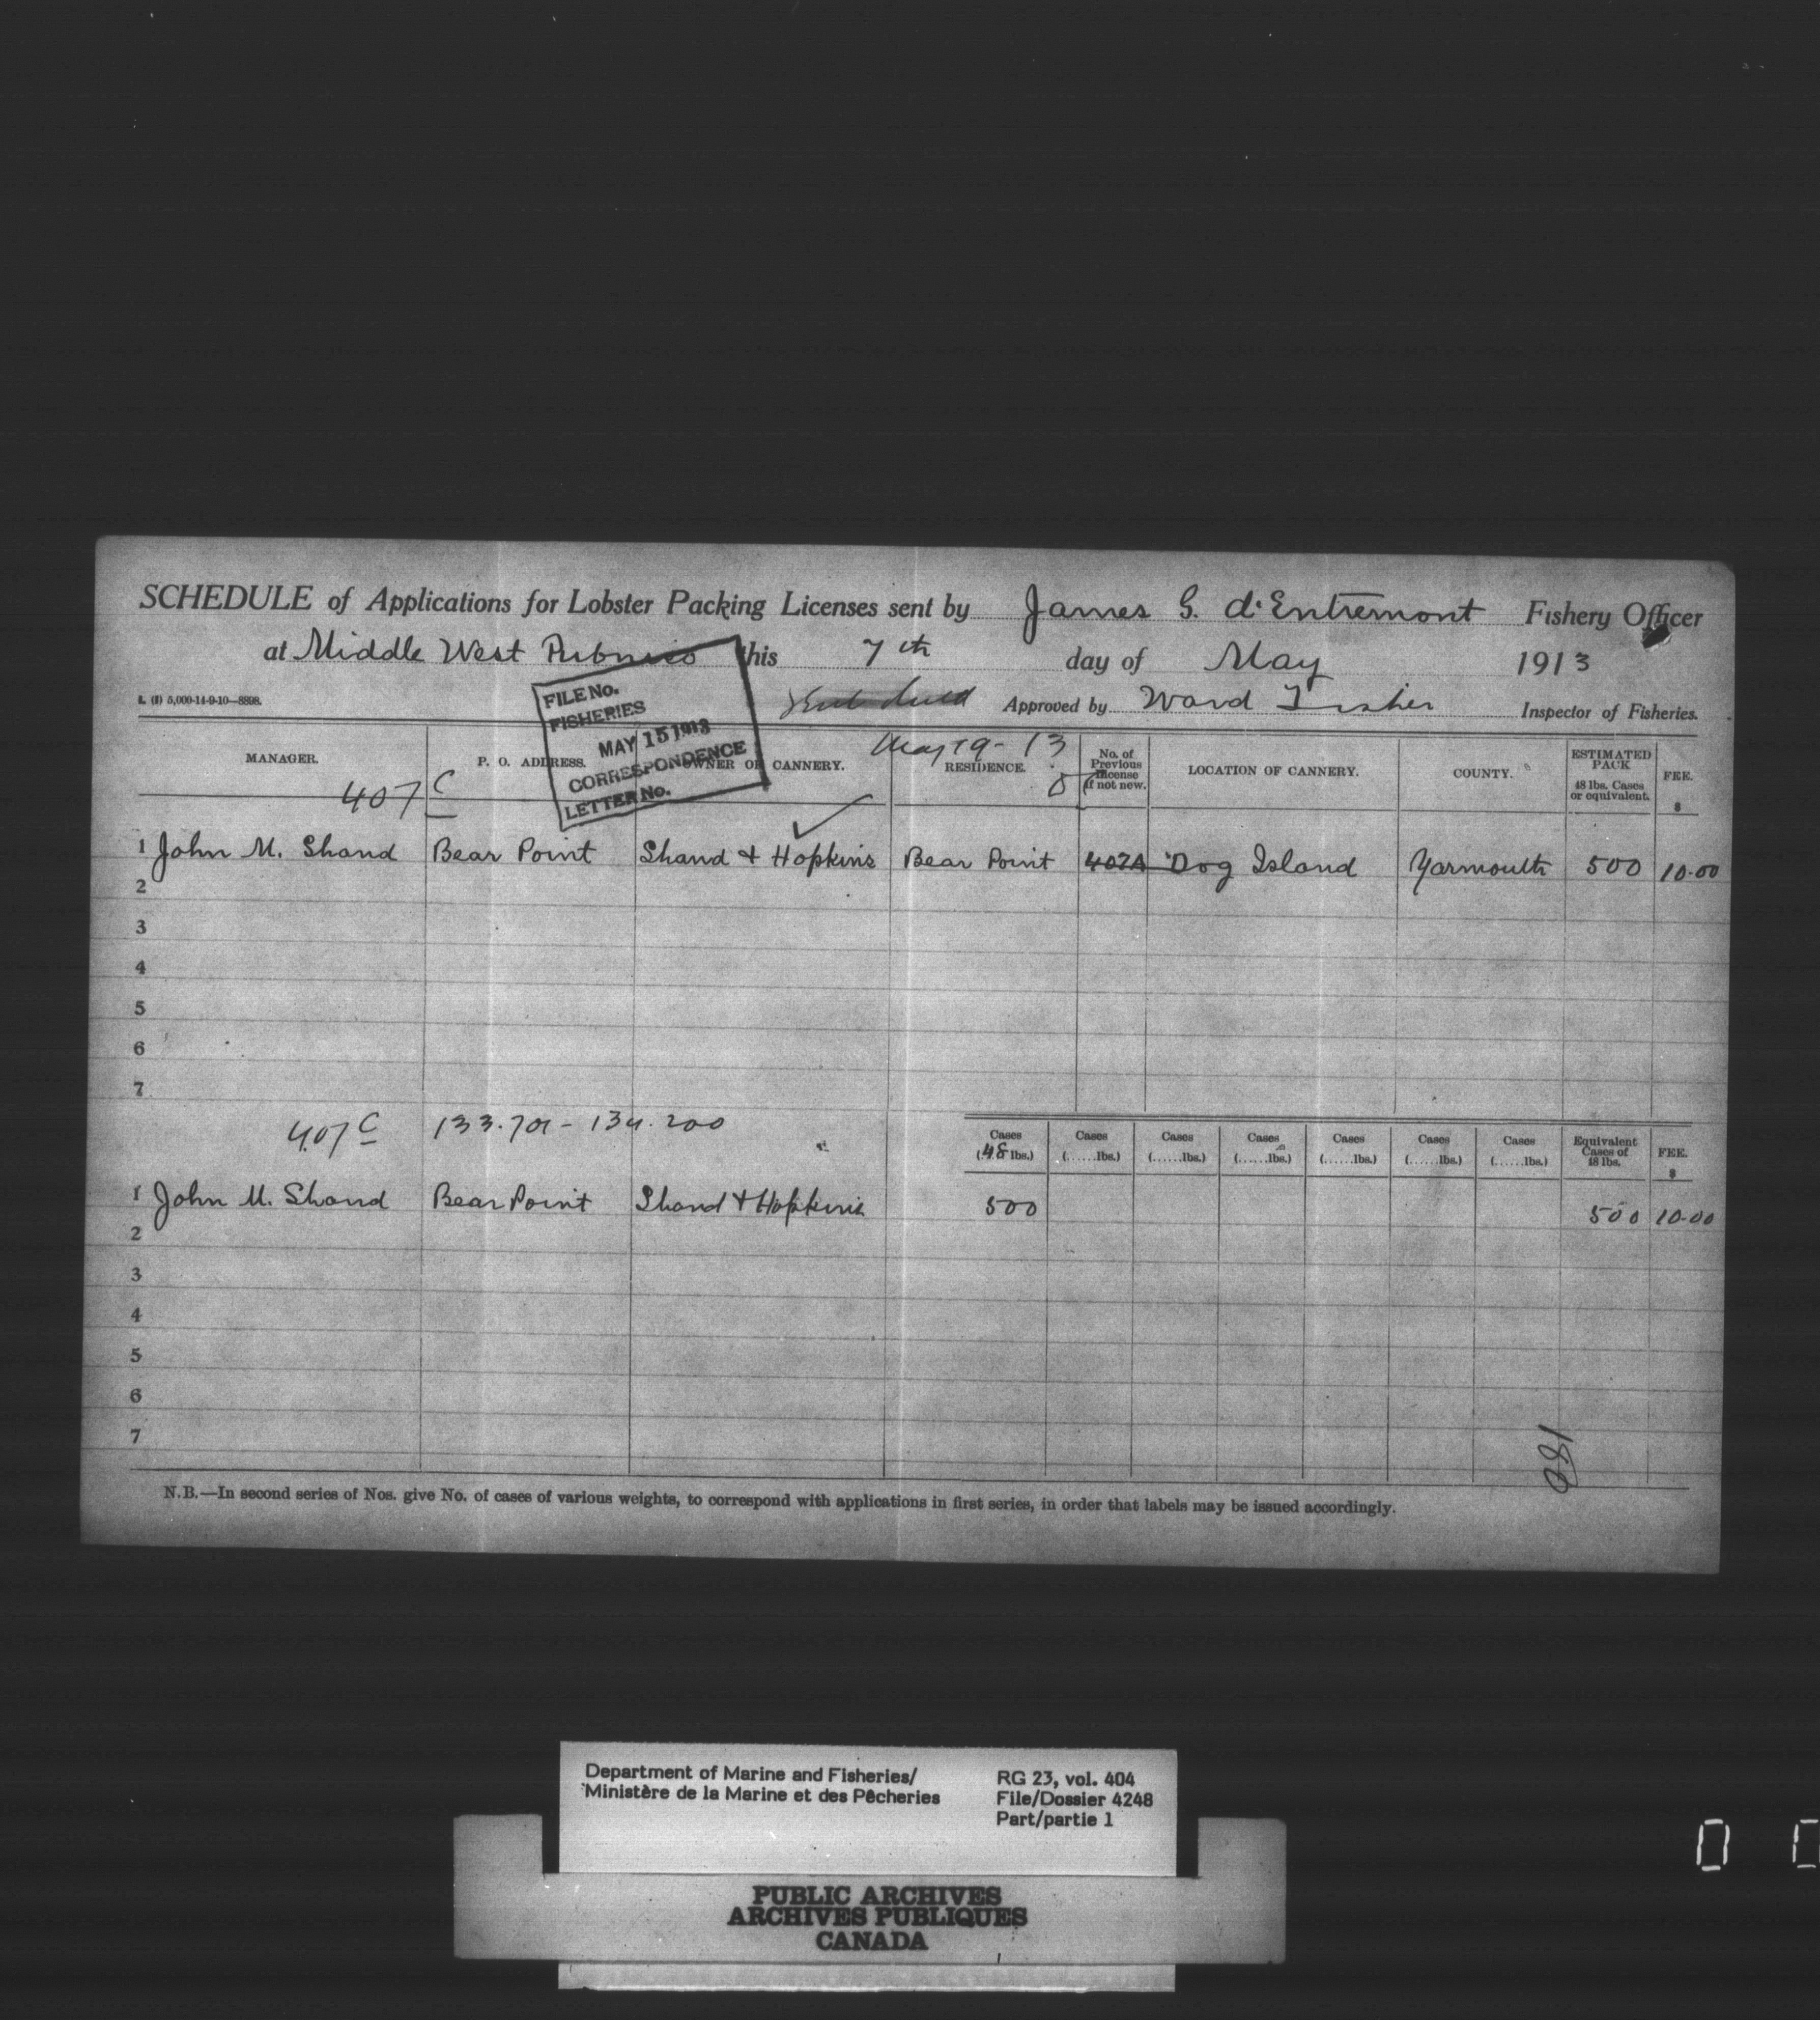 SCHEDULE of Applications for Lobster Packing Licenses sent by James G. d'Entremont Fishery Officer
at Middle West Pubnico this 7th day of May 1913
Approved by Ward Fisher Inspector of Fisheries.
FILE No.
FISHERIES
MAY 15 1913
CORRESPONDENCE
LETTER No.
May 19-13
MANAGER. P. O. ADDRESS. OWNER OF CANNERY. RESIDENCE. No. of Previous License (if not new. LOCATION OF CANNERY. COUNTY. ESTIMATED PACK 48 lbs. Cases or equivalent. FEE. $
407 C
1 John M. Shand Bear Point Shand & Hopkins Bear Point 407A Dog Island Yarmouth 500 10.00
2
3
4
5
6
7
407 C 133.701 - 134.200
Cases (48 lbs.) Cases (......lbs.) Cases (......lbs.) Cases (......lbs.) Cases (......lbs.) Cases (......lbs.) Cases (......lbs.) Equivalent Cases of 48 lbs. FEE. $
1 John M. Shand Bear Point Shand & Hopkins 500 500 10.00
2
3
4
5
6
7
N.B.—In second series of Nos. give No. of cases of various weights, to correspond with applications in first series, in order that labels may be issued accordingly.
Department of Marine and Fisheries/
Ministère de la Marine et des Pêcheries
RG 23, vol. 404
File/Dossier 4248
Part/partie 1
PUBLIC ARCHIVES
ARCHIVES PUBLIQUES
CANADA